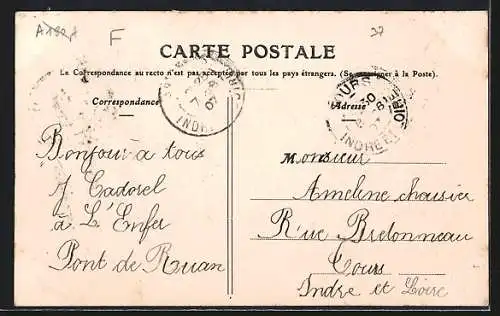 F
37
CARTE POSTALE
La Correspondance au recto n'est pas acceptée par tous les pays étrangers. (Se renseigner à la Poste).
Correspondance
Adresse
TOURS
INDRE ET
INDRE
Bonjour à tous
J. Cadorel
à L'Enfer
Pont de Ruan
Monsieur
Amelene chausier
Rue Bretonneau
Tours
Indre et Loire